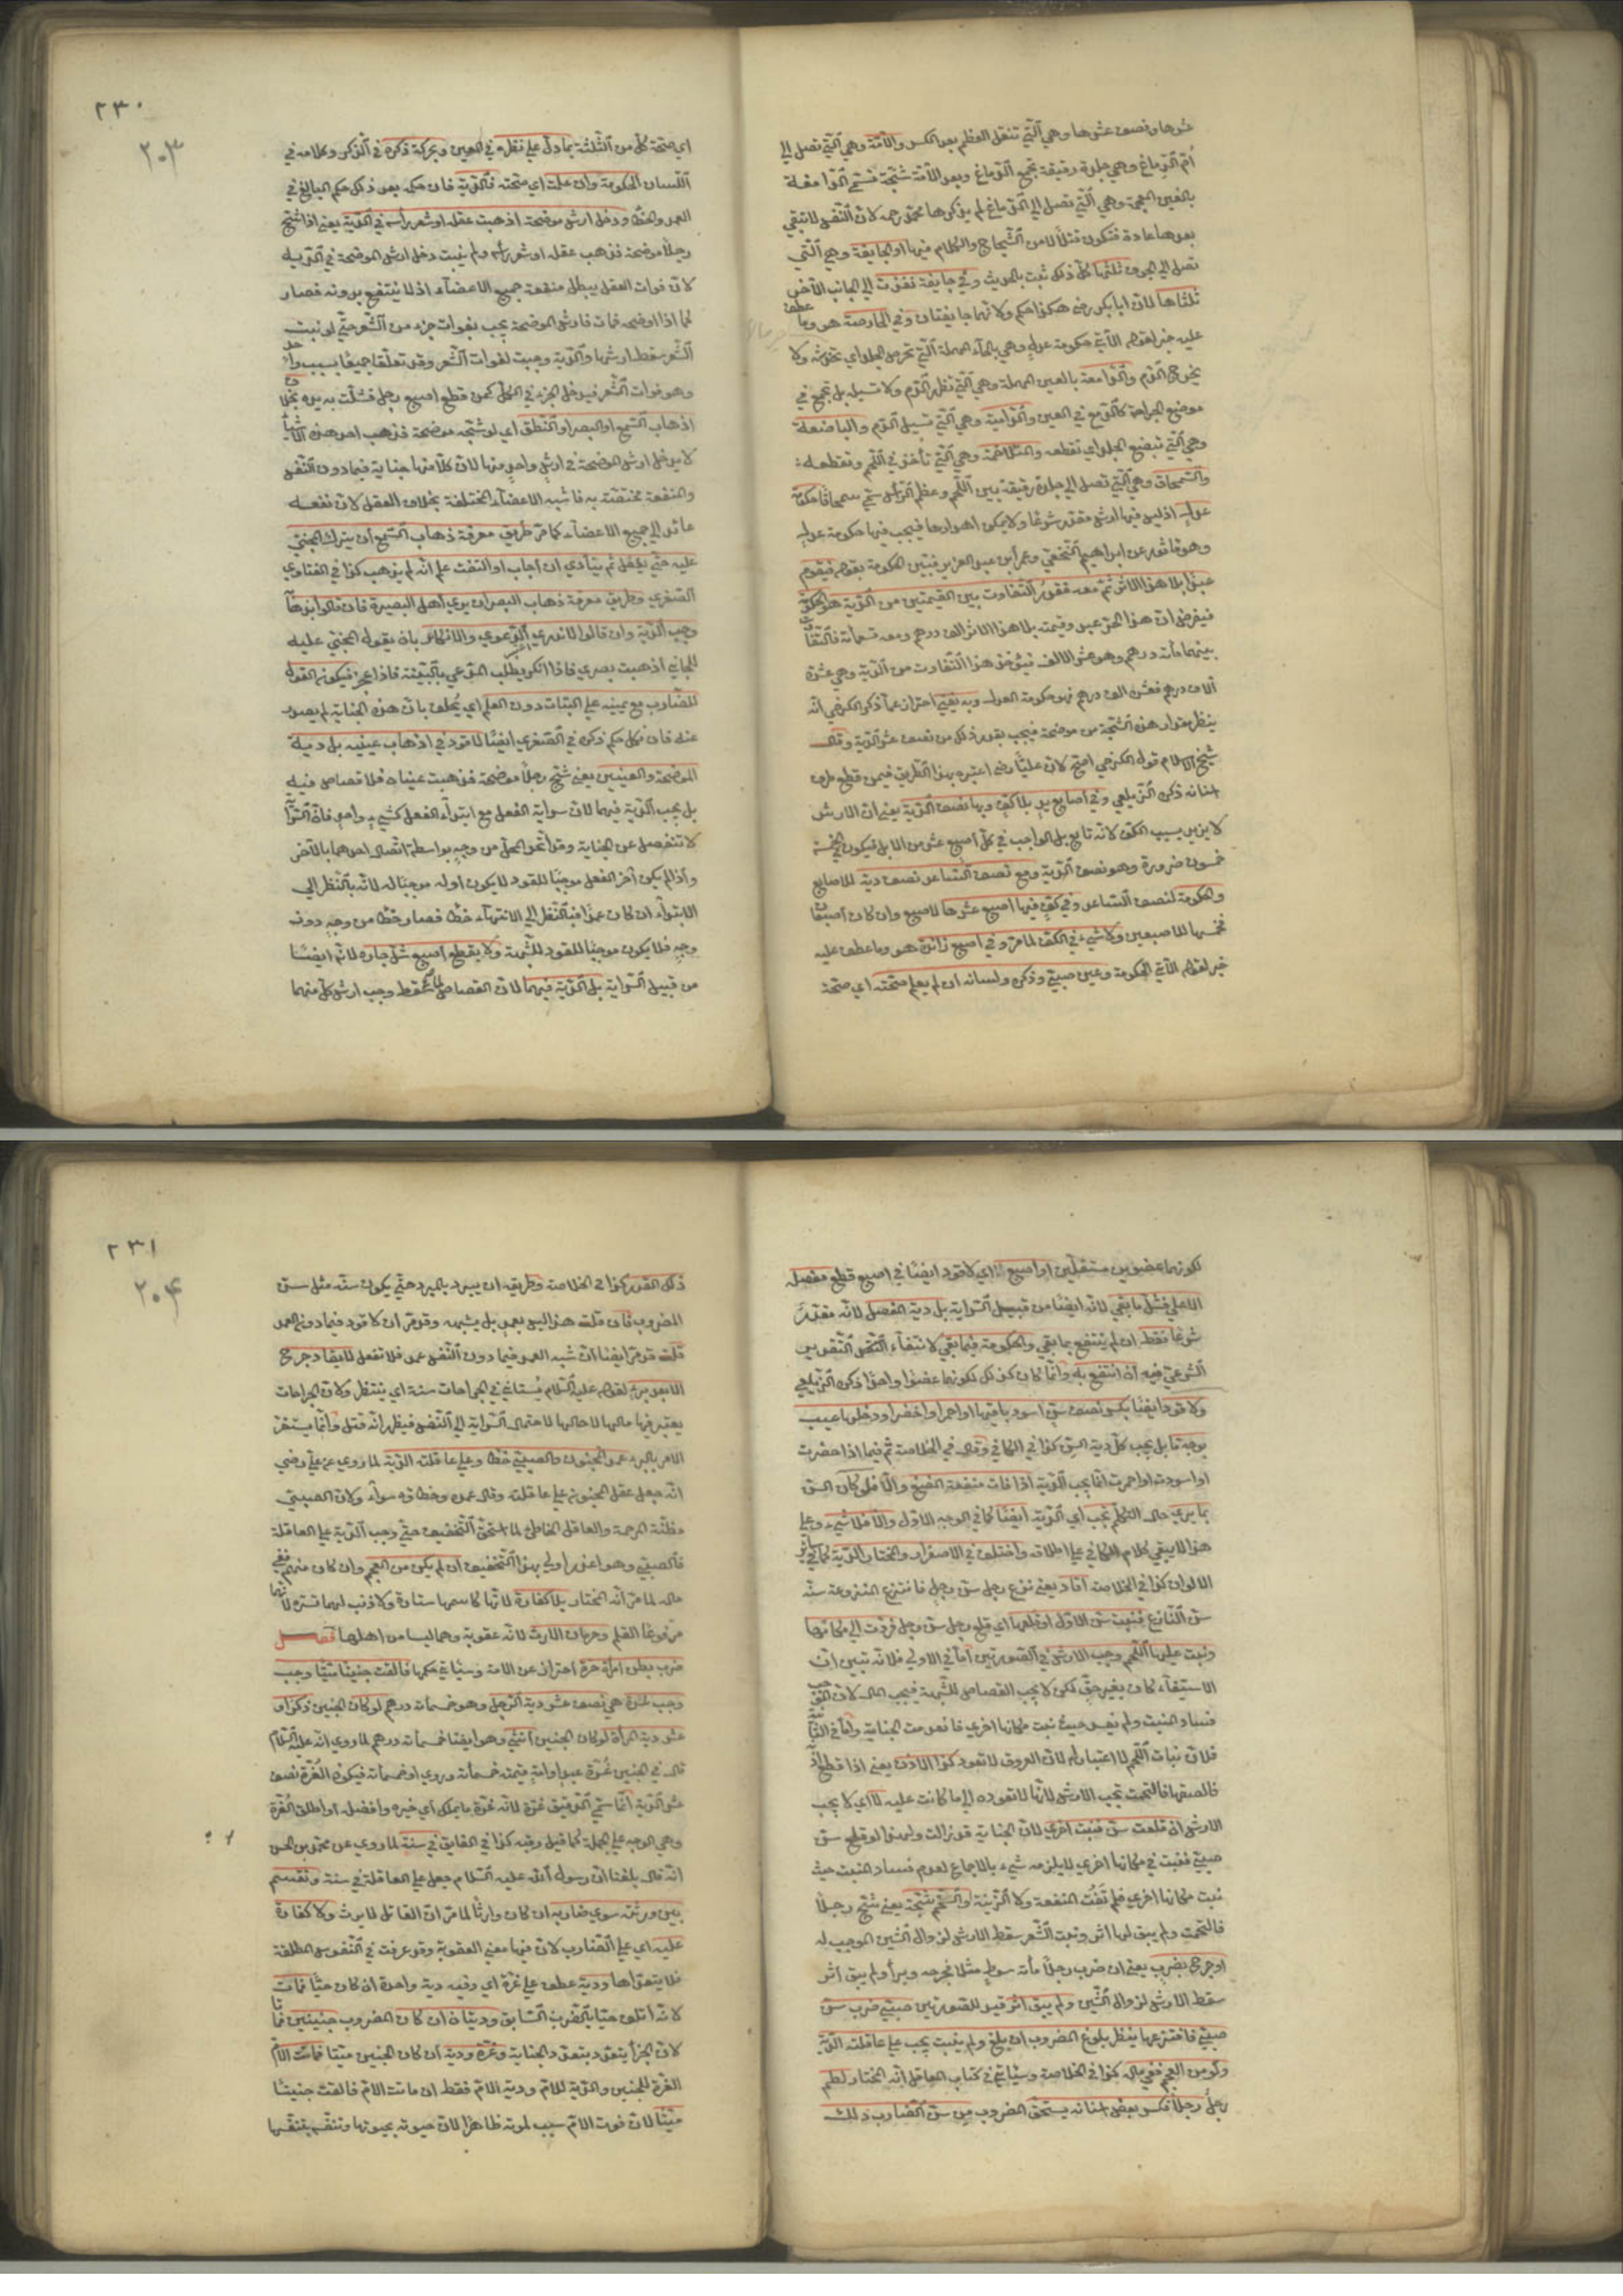 عشرها ونصف عشرها وهي الّتي تنقل العظم بعد الكسر والآمّة وهي الّتي تصل الي
أمّ الدّماغ وهي جلدة رقيقة تجمع الدّماغ وبعد الآمّة شجّة تسمّي الدّامغة
بالغين المعجمة وهي الّتي تصل الي الدّماغ لم يذكرها محمّد رحمه لانّ النّفس لا تبقي
بعدها عادة فتكون قتلاً لا من الشّجاج والكلام فيها او الجايفة وهي الّتي
تصل الي الجوف ثلثها كلّ ذلك ثبت بالحديث وفي جايفة نفذت الي الجانب الآخر
ثلثاها لانّ ابا بكر رضي هكذا حكم ولانّها جايفتان وفي الحارصة هو وما عطف
عليه خبر لقوله الآتي حكومة عدل وهي بالحاء المهملة الّتي تحرص الجلد اي تخدشه ولا
يخرج الدّم والدّامعة بالعين المهملة وهي الّتي تظهر الدّم ولا تسيله بل تجمع في
موضع الجراحة كالدّمع في العين والدّامية وهي الّتي تسيل الدّم والباضعة
وهي الّتي تبضع الجلد اي تقطعه والمتلاحمة وهي الّتي تأخذ في اللّحم وتقطعه
والسّمحاق وهي الّتي تصل الي جلدة رقيقة بين اللّحم وعظم الرّأس تسمّي سمحاقا حكومة
عدل اذ ليس فيها ارش مقدّر شرعًا ولا يمكن اهدارها فيجب فيها حكومة عدل
وهو مأثور عن ابراهيم النّخعي وعمر ابن عبد العزيز فبيّن الحكومة بقوله فيقوم
عبدًا بلا هذا الاثر ثمّ معه فقدر التّفاوت بين القيمتين من الدّية هو الحكومة
فيفرض انّ هذا الحرّ عبد وقيمته بلا هذا الاثر الف درهم ومعه تسعمائة فالتّفاوت
بينهما مائة درهم وهو عشر الالف فيؤخذ هذا التّفاوت من الدّية وهي عشرة
آلاف درهم فعشره الف درهم فهو حكومة العدل وبه يفتي احتراز عمّا ذكر الكرخي انّه
ينظر مقدار هذه الشّجّة من موضحة فيجب بقدر ذلك من نصف عشر الدّية وقال
شيخ الاسلام قول الكرخي اصحّ لانّ عليًّا رضي اعتبره بهذا الطّريق فيمن قطع طرف
لسانه ذكره الزّيلعي وفي اصابع يد بلا كفّ وبها نصف الدّية يعني انّ الارش
لا يزيد بسبب الكفّ لانّه تابع بل الواجب في كلّ اصبع عشر من الابل فيكون في الخمسة
خمسون ضرورة وهو نصف الدّية ومع نصف السّاعد نصف دية للاصابع
والحكومة لنصف السّاعد وفي كفّ فيها اصبع عشرها للاصبع وان كان اصبعان
فخمسها للاصبعين ولا شيء في الكفّ لما مرّ وفي اصبع زائدة هو وما عطف عليه
خبر لقوله الآتي الحكومة وعين صبيّ وذكره ولسانه ان لم يعلم صحّته اي صحّة
٢٣٠
٢٠٣
اي صحّة كلّ من الثّلثة بما دلّ علي نظره في العين وبحركة ذكره في الذّكر وكلامه في
اللّسان الحكومة وان علمت اي صحّته فالدّية فان حكمه بعد ذلك حكم البالغ في
العمد والخطأ ودخل ارش موضحة اذهبت عقله او شعر رأسه في الدّية يعني اذا شجّ
رجلاً موضحة فذهب عقله او شعر رأسه ولم ينبت دخل ارش الموضحة في الدّية
لانّ فوات العقل يبطل منفعة جميع الاعضاء اذ لا ينتفع بدونه فصار
كما اذا اوضحه فمات فارش الموضحة يجب بفوات جزء من الشّعر حتّي لو نبت
الشّعر سقط ارشها والدّية وجبت لفوات الشّعر وقد تعلّقا جميعًا بسبب واحد
وهو فوات الشّعر فيدخل الجزء في الكلّ كمن قطع اصبع رجل فشلّت به يده بخلاف
اذهاب السّمع او البصر او النّطق اي لو شجّه موضحة فذهب احد هذه الاشياء
لا يدخل ارش الموضحة في ارش واحد منها لانّ كلاًّ منها جناية فيما دون النّفس
والمنفعة مختصّة به فاشبه الاعضاء المختلفة بخلاف العقل لانّ نفعه
عائد الي جميع الاعضاء كما مرّ طريق معرفة ذهاب السّمع أن يترك المجنيّ
عليه حتّي يغفل ثم ينادي ان أجاب او التفت علم انّه لم يذهب كذا في الفتاوي
الصّغري وطريق معرفة ذهاب البصر ان يري أهل البصيرة فان قالوا بذهابه
وجب الدّية وان قالوا لا ندري الدّعوي والانكار بان يقول المجنيّ عليه
للجاني اذهبت بصري فاذا انكر يطلب المدّعي بالبيّنة فاذا عجز فيكون القول
للضّارب مع يمينه علي البتات دون العلم اي يُحلف بانّ هذه الجناية لم يصدر
عنه فان نكل حكم ذكره في الصّغري ايضًا لا قود في اذهاب عينيه بل دية
الموضحة والعينين يعني شجّ رجلاً موضحة فذهبت عيناه فلا قصاص فيه
بل يجب الدّية فيهما لانّ سراية الفعل مع ابتداء الفعل كشيء واحد فانّ السّراية
لا تنفصل عن الجناية وقد اتّحد المحلّ من وجه بواسطة اتّصال احدهما بالآخر
واذا لم يكن آخر الفعل موجبًا للقود لا يكون اوله موجبًا له لانّه بالنّظر الي
الابتداء ان كان عمدًا فبالنّظر الي الانتهاء خطأ فصار خطأ من وجه دون
وجه فلا يكون موجبًا للقود للشّبهة ولا يقطع اصبع شلّ جاره لانّه ايضًا
من قبيل السّراية بل الدّية فيهما لانّ القصاص لمّا سقط وجب ارش كلّ منهما
لكونهما عضوين مستقلّين او اصبع اي لا قود ايضًا في اصبع قطع مفصله
الاعلي فشلّ ما بقي لانّه ايضًا من قبيل السّراية بل دية المفصل لانّه مقدّر
شرعًا فقط ان لم ينتفع بما بقي والحكومة فيما بقي لانتفاء
الشّرعيّ فيه ان انتفع به وانّما كان كذلك لكونها عضوًا واحدًا ذكره الزّيلعي
ولا قود ايضًا بكسر نصف سنّ اسود باقيها او احمر او اخضر او دخلها عيب
بوجه ما بل يجب كلّ دية السنّ كذا في الكافي وقال في الخلاصة ثمّ فيما اذا اخضرت
او اسودت او احمرت انّما يجب الدّية اذا فات منفعة المضغ والّا فلو كان السنّ
ممّا يري حال التكلّم تجب اي الدّية ايضًا كما في الوجه الاوّل والّا فلا شيء وعلي
هذا لا يبقي كلام الكافي علي اطلاقه واختلف في الاصفرار والمختار الدّية كما في سائر
الالوان كذا في الخلاصة أقاد يعني نزع رجل سنّ رجل فانتزع المنزوعة سنّه
سنّ النّازع فنبت سنّ الاوّل او قلعها اي قلع رجل سنّ رجل فردّت الي مكانها
ونبت عليها اللّحم وجب الارش في الصّورتين أمّا في الاولي فلانّه تبيّن انّ
الاستيفاء كان بغير حقّ لكن لا يجب القصاص للشّبهة فيجب المال لانّ الموجب
فساد المنبت ولم يفسد حيث نبت مكانها اخري فانعدمت الجناية وأمّا في الثّانية
فلانّ نبات اللّحم لا اعتبار له لانّ العروق لا تعود كذا الاذن يعني اذا قطع اذنه
فالصقها فالتحمت تجب الارش لانّها لا تعود الي ما كانت عليه لا اي لا يجب
الارش ان قلعت سنّ فنبت اخري لانّ الجناية قد زالت ولهذا لو قلع سنّ
صبيّ فنبت في مكانها اخري لا يلزمه شيء بالاجماع لعدم فساد المنبت حيث
نبت مكانها اخري فلم تفُت المنفعة ولا الزّينة والتحم شجّة يعني شجّ رجلاً
فالتحمت ولم يبق لها اثر ونبت الشّعر سقط الارش لزوال الشّين الموجب له
او جرح بضرب يعني ان ضرب رجلاً مائة سوط مثلا فجرحه وبرأ ولم يبق اثر
سقط الارش لزوال الشّين ولم يبق اثر قيد للصّورتين صبيّ ضرب سنّ
صبيّ فانتزعها ينظر بلوغ المضروب ان بلغ ولم ينبت يجب علي عاقلته الدّية
ولو من العجم ففي ماله كذا في الخلاصة وسيأتي في كتاب المعاقل انّه المختار لطم
رجل رجلاً فكسر بعض اسنانه يستحقّ المضروب من سنّ الضّارب ذلك
٢٣١
٢٠٤
ذلك القدر كذا في الخلاصة وطريقه ان يبرد بالمبرد حتّي يكون سنّه مثل سنّ
المضروب فان قلت هذا ليس بعمد بل يشبهه وقد مرّ ان لا قود فيما دون العمد
قلت قد مرّ ايضا انّ شبه العمد فيما دون النّفس عمد فلا تغفل لا يقاد جرح
الّا بعد برء لقوله عليه السّلام يُستأني في الجراحات سنة اي ينتظر ولانّ الجراحات
يعتبر فيها مالها لا حالها لاحتمال السّراية الي النّفس فيظهر انّه قتل وانّما يستقرّ
الامر بالبرء عمد المجنون والصبيّ خطأ وعلي عاقلته الدّية لما روي عن علي رضي
انّه جعل عقل المجنون علي عاقلته وقال عمده وخطاؤه سواء ولانّ الصبيّ
مظنّة الرحمة والعاقل الخاطئ لما استحقّ التّخفيف حتّي وجب الدّية علي العاقلة
فالصبيّ وهو اعذر اولي بهذا التّخفيف ان لم يكن من العجم وان كان منهم ففي
ماله لما مرّ انّه المختار بلا كفّارة لانّها كاسمها ستارة ولا ذنب لهما تستره لانّهما
مرفوعا القلم وحرمان الارث لانّه عقوبة وهما ليسا من اهلها فصل
ضرب بطن امرأة حرّة احتراز عن الامة وسيأتي حكمها فالقت جنينا ميّتًا وجب
وجب غرّة هي نصف عشر دية الرّجل وهو خمسمائة درهم لو كان الجنين ذكرا و
عشر دية المرأة لو كان الجنين انثي وهو ايضا خمسمائة درهم لما روي انّه عليه السّلام
قال في الجنين غُرّة عبد او امة قيمته خمسمائة وروي او خمسمائة فيكون الغُرّة نصف
عشر الدّية انّما سمّي الرّقيق غرّة لانّه غرّة ما يملك اي خيره وافضله او اطلق الغُرّة
وهي الوجه علي الجملة كما قيل رقبة كذا في الفايق في سنة لما روي عن محمّد بن الحسن
انّه قال بلغنا انّ رسول الله عليه السّلام جعل علي العاقلة في سنة وتقسم
بين ورثته سوي ضاربه ان كان وارثًا لما مرّ انّ القاتل لا يرث ولا كفّارة
عليه اي علي الضّارب لانّ فيها معني العقوبة وقد عرفت في النّفوس المطلقة
فلا يتعدّاها ودية عطف علي غرّة اي وفيه دية واحدة ان كان حيًّا فمات
لانّه اتلف حيّا بالضّرب السّابق وديتان ان كان المضروب جنينين فماتا
لانّ الجزاء يتعدّد بتعدّد الجناية وغرّة ودية ان كان الجنين ميّتا فماتت الامّ
الغرّة للجنين والدّية للامّ ودية الامّ فقط ان ماتت الامّ فالقت جنينًا
ميّتًا لانّ موت الامّ سبب لموته ظاهرًا لانّ حيوته بحيوتها وتنفّسه بتنفّسها